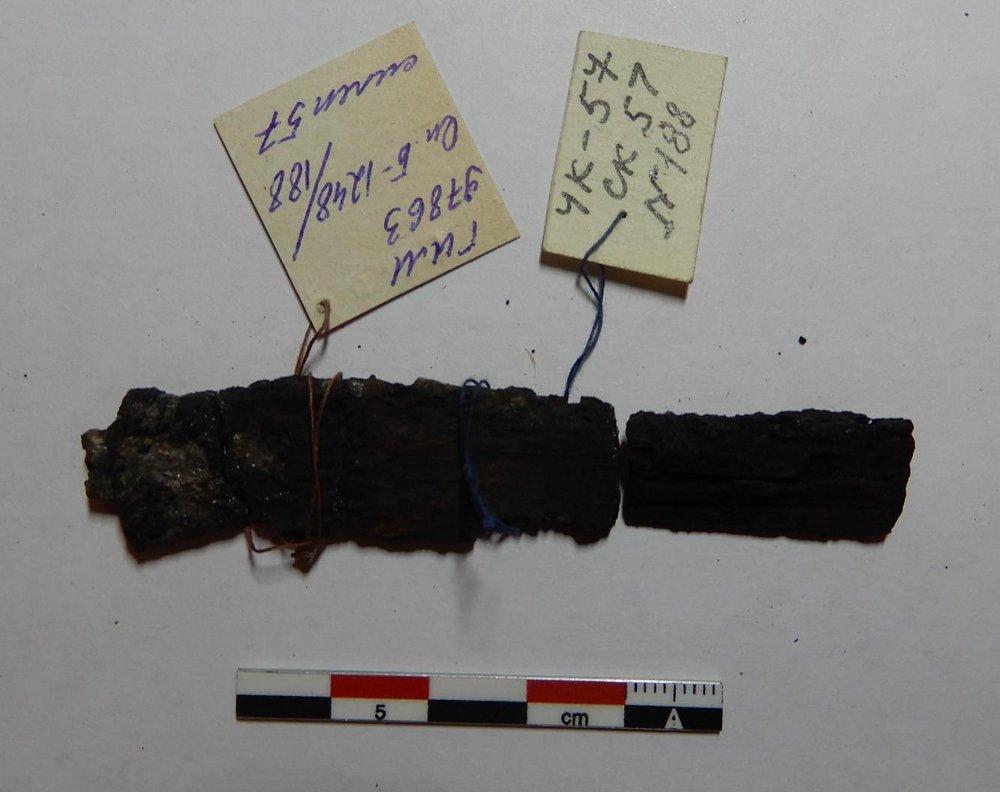 ГИМ
97863
Оп. Б-1248/188
склеп 57
УК-57
ск 57
№188
5 cm
A